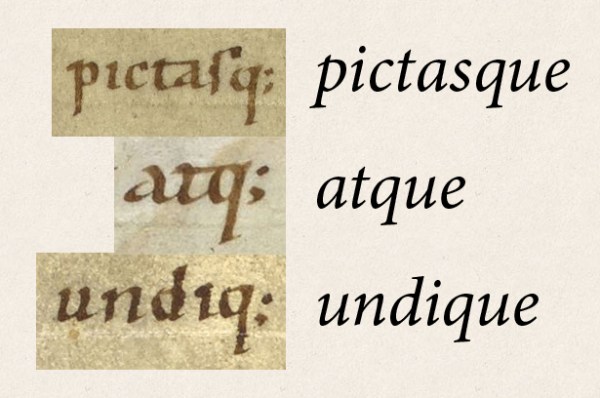 pictasq; pictasque
atq; atque
undiq; undique